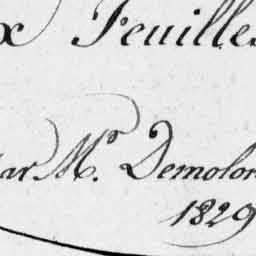 x Feuilles
ar Mr. Demolor
1829